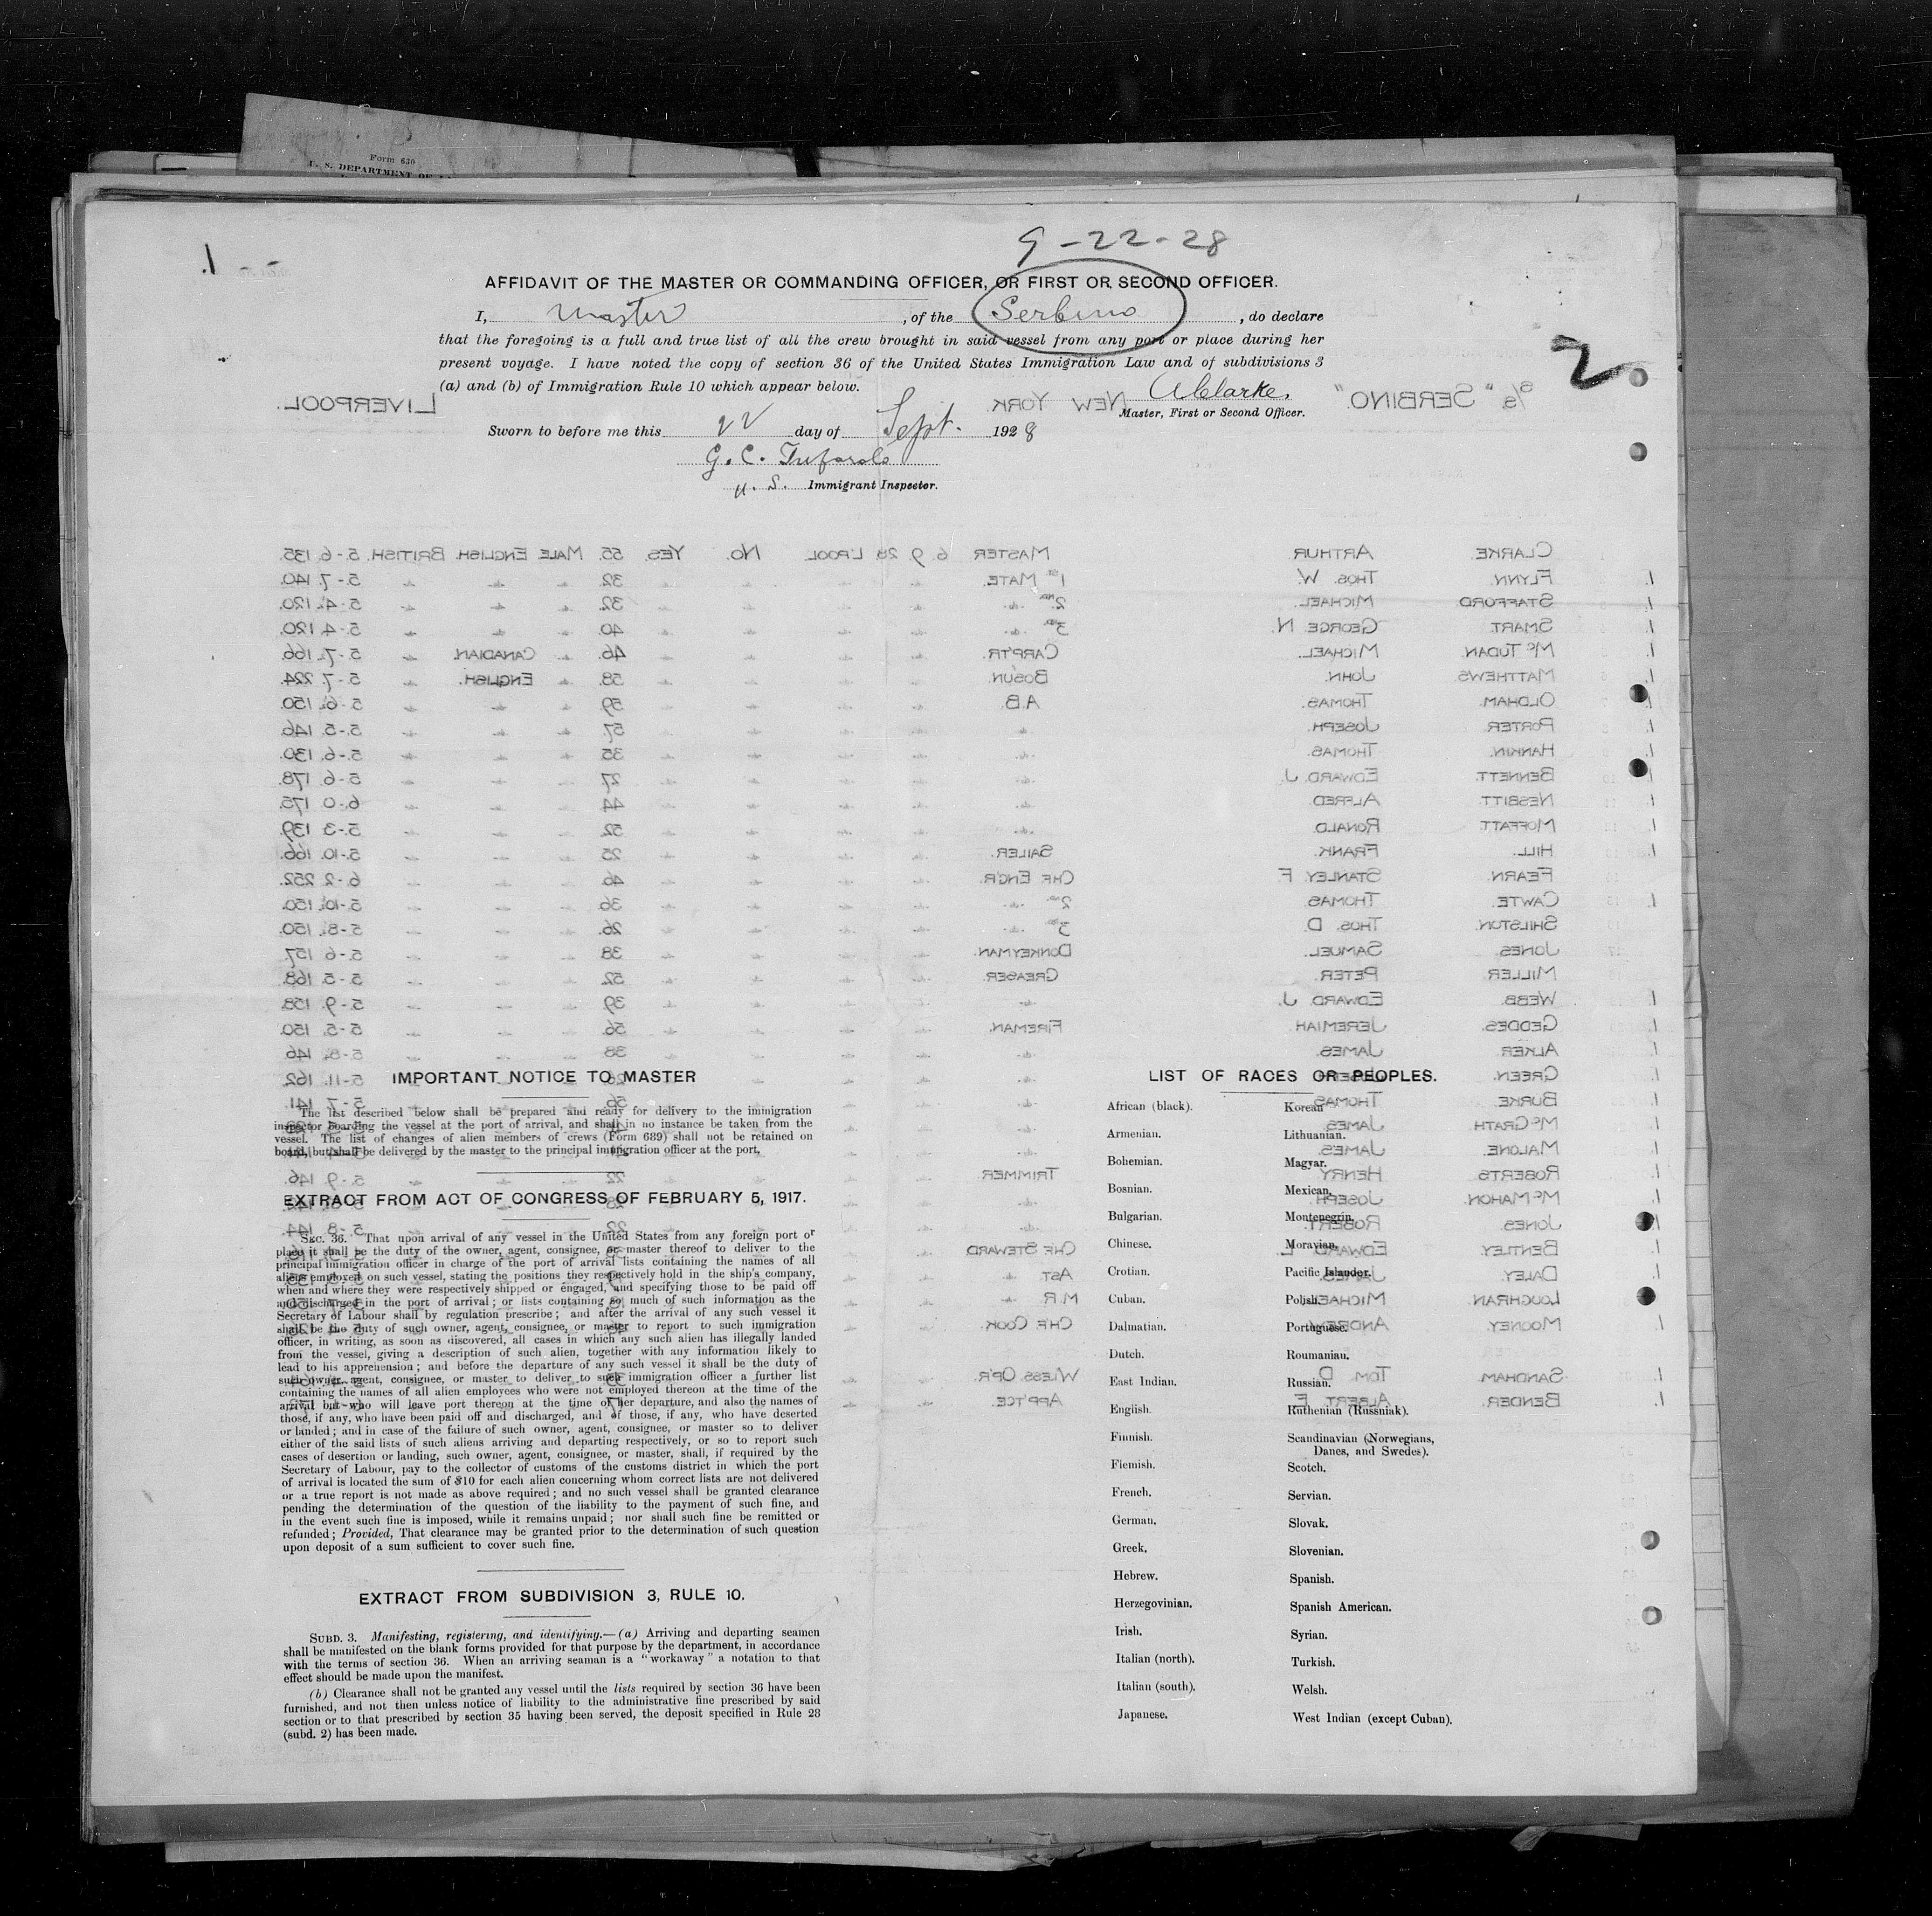 Form 630
U. S. DEPARTMENT OF
9-22-28
1.
AFFIDAVIT OF THE MASTER OR COMMANDING OFFICER, OR FIRST OR SECOND OFFICER.
I, Master, of the Serbino, do declare
that the foregoing is a full and true list of all the crew brought in said vessel from any port or place during her
present voyage. I have noted the copy of section 36 of the United States Immigration Law and of subdivisions 3
(a) and (b) of Immigration Rule 10 which appear below.
2
A Clarke.
Master, First or Second Officer.
S/S "SERBINO." NEW YORK. LIVERPOOL.
Sworn to before me this 22 day of Sept. 1928
G. C.
U. S. Immigrant Inspector.
CLARKE. ARTHUR MASTER 6 9 28 L'POOL No. YES. 55. MALE ENGLISH. BRITISH. 5-6. 135.
1. FLYNN. THOS. W. 1ST MATE. 32. 5-7. 140.
1. STAFFORD MICHAEL. 2ND 32. 5-4. 120.
1. SMART. GEORGE. N. 3RD 40. 5-4 120.
1. McTUDAN. MICHAEL. CARPTR. 46. CANADIAN. 5-7. 166.
1. MATTHEWS. JOHN. BOSUN. 58. ENGLISH. 5-7. 224.
1. OLDHAM. THOMAS. A.B. 59. 5-6. 150.
1. PORTER. JOSEPH. 57. 5-5. 146.
1. HANKIN. THOMAS. 35 5-6. 130.
1. BENNETT. EDWARD. J. 27 5-6. 178.
1. NESBITT. ALFRED 44 6-0. 175.
1. MOFFATT. RONALD. 52. 5-3. 139.
1. HILL. FRANK. SAILER. 25 5-10. 166.
FEARN. STANLEY. F. CHF ENG'R. 46 6-2. 252.
1. CAWTE. THOMAS 2ND 36 5-10. 150.
SHILSTON. THOS. D. 3RD 26. 5-8. 150.
JONES. SAMUEL. DONKEYMAN. 38 5-6. 157.
MILLER PETER. GREASER 52. 5-5. 168.
1. WEBB. EDWARD. J. 39 5-9. 158.
1. GEDDES. JEREMIAH. FIREMAN. 56. 5-5. 150.
1. ALKER. JAMES. 38 5-8. 146
1. GREEN. 5-11. 162.
1. BURKE. THOMAS. 56 5-7. 141
1. McGRATH. JAMES.
1. MALONE. JAMES.
1. ROBERTS HENRY. TRIMMER 22 5-9. 146
1. McMAHON. JOSEPH.
1. JONES. ROBERT. 22 5-8. 144
1. BENTLEY. EDWARD. L. CHF STEWARD
1. DALEY. JAMES. AST
1. LOUGHRAN. MICHAEL. M.R
1. MOONEY. ANDREW CHF COOK.
1. SANDHAM. TOM. D W'LESS. OP'R.
1. BENDER. ALBERT. E APP'TCE.
IMPORTANT NOTICE TO MASTER
The list described below shall be prepared and ready for delivery to the immigration
inspector boarding the vessel at the port of arrival, and shall in no instance be taken from the
vessel. The list of changes of alien members of crews (Form 689) shall not be retained on
board, but shall be delivered by the master to the principal immigration officer at the port.
EXTRACT FROM ACT OF CONGRESS OF FEBRUARY 5, 1917.
SEC. 36. That upon arrival of any vessel in the United States from any foreign port or
place it shall be the duty of the owner, agent, consignee, or master thereof to deliver to the
principal immigration officer in charge of the port of arrival lists containing the names of all
aliens employed on such vessel, stating the positions they respectively hold in the ship's company,
when and where they were respectively shipped or engaged, and specifying those to be paid off
and discharged in the port of arrival; or lists containing so much of such information as the
Secretary of Labour shall by regulation prescribe; and after the arrival of any such vessel it
shall be the duty of such owner, agent, consignee, or master to report to such immigration
officer, in writing, as soon as discovered, all cases in which any such alien has illegally landed
from the vessel, giving a description of such alien, together with any information likely to
lead to his apprehension; and before the departure of any such vessel it shall be the duty of
such owner, agent, consignee, or master to deliver to such immigration officer a further list
containing the names of all alien employees who were not employed thereon at the time of the
arrival but who will leave port thereon at the time of her departure, and also the names of
those, if any, who have been paid off and discharged, and of those, if any, who have deserted
or landed; and in case of the failure of such owner, agent, consignee, or master so to deliver
either of the said lists of such aliens arriving and departing respectively, or so to report such
cases of desertion or landing, such owner, agent, consignee, or master, shall, if required by the
Secretary of Labour, pay to the collector of customs of the customs district in which the port
of arrival is located the sum of $10 for each alien concerning whom correct lists are not delivered
or a true report is not made as above required; and no such vessel shall be granted clearance
pending the determination of the question of the liability to the payment of such fine, and
in the event such fine is imposed, while it remains unpaid; nor shall such fine be remitted or
refunded; Provided, That clearance may be granted prior to the determination of such question
upon deposit of a sum sufficient to cover such fine.
EXTRACT FROM SUBDIVISION 3, RULE 10.
SUBD. 3. Manifesting, registering, and identifying.—(a) Arriving and departing seamen
shall be manifested on the blank forms provided for that purpose by the department, in accordance
with the terms of section 36. When an arriving seaman is a "workaway" a notation to that
effect should be made upon the manifest.
(b) Clearance shall not be granted any vessel until the lists required by section 36 have been
furnished, and not then unless notice of liability to the administrative fine prescribed by said
section or to that prescribed by section 35 having been served, the deposit specified in Rule 28
(subd. 2) has been made.
LIST OF RACES OR PEOPLES.
African (black).
Armenian.
Bohemian.
Bosnian.
Bulgarian.
Chinese.
Crotian.
Cuban.
Dalmatian.
Dutch.
East Indian.
English.
Finnish.
Flemish.
French.
German.
Greek.
Hebrew.
Herzegovinian.
Irish.
Italian (north).
Italian (south).
Japanese.
Korean
Lithuanian.
Magyar.
Mexican.
Montenegrin.
Moravian.
Pacific Islander.
Polish.
Portuguese.
Roumanian.
Russian.
Ruthenian (Russniak).
Scandinavian (Norwegians,
Danes, and Swedes).
Scotch.
Servian.
Slovak.
Slovenian.
Spanish.
Spanish American.
Syrian.
Turkish.
Welsh.
West Indian (except Cuban).